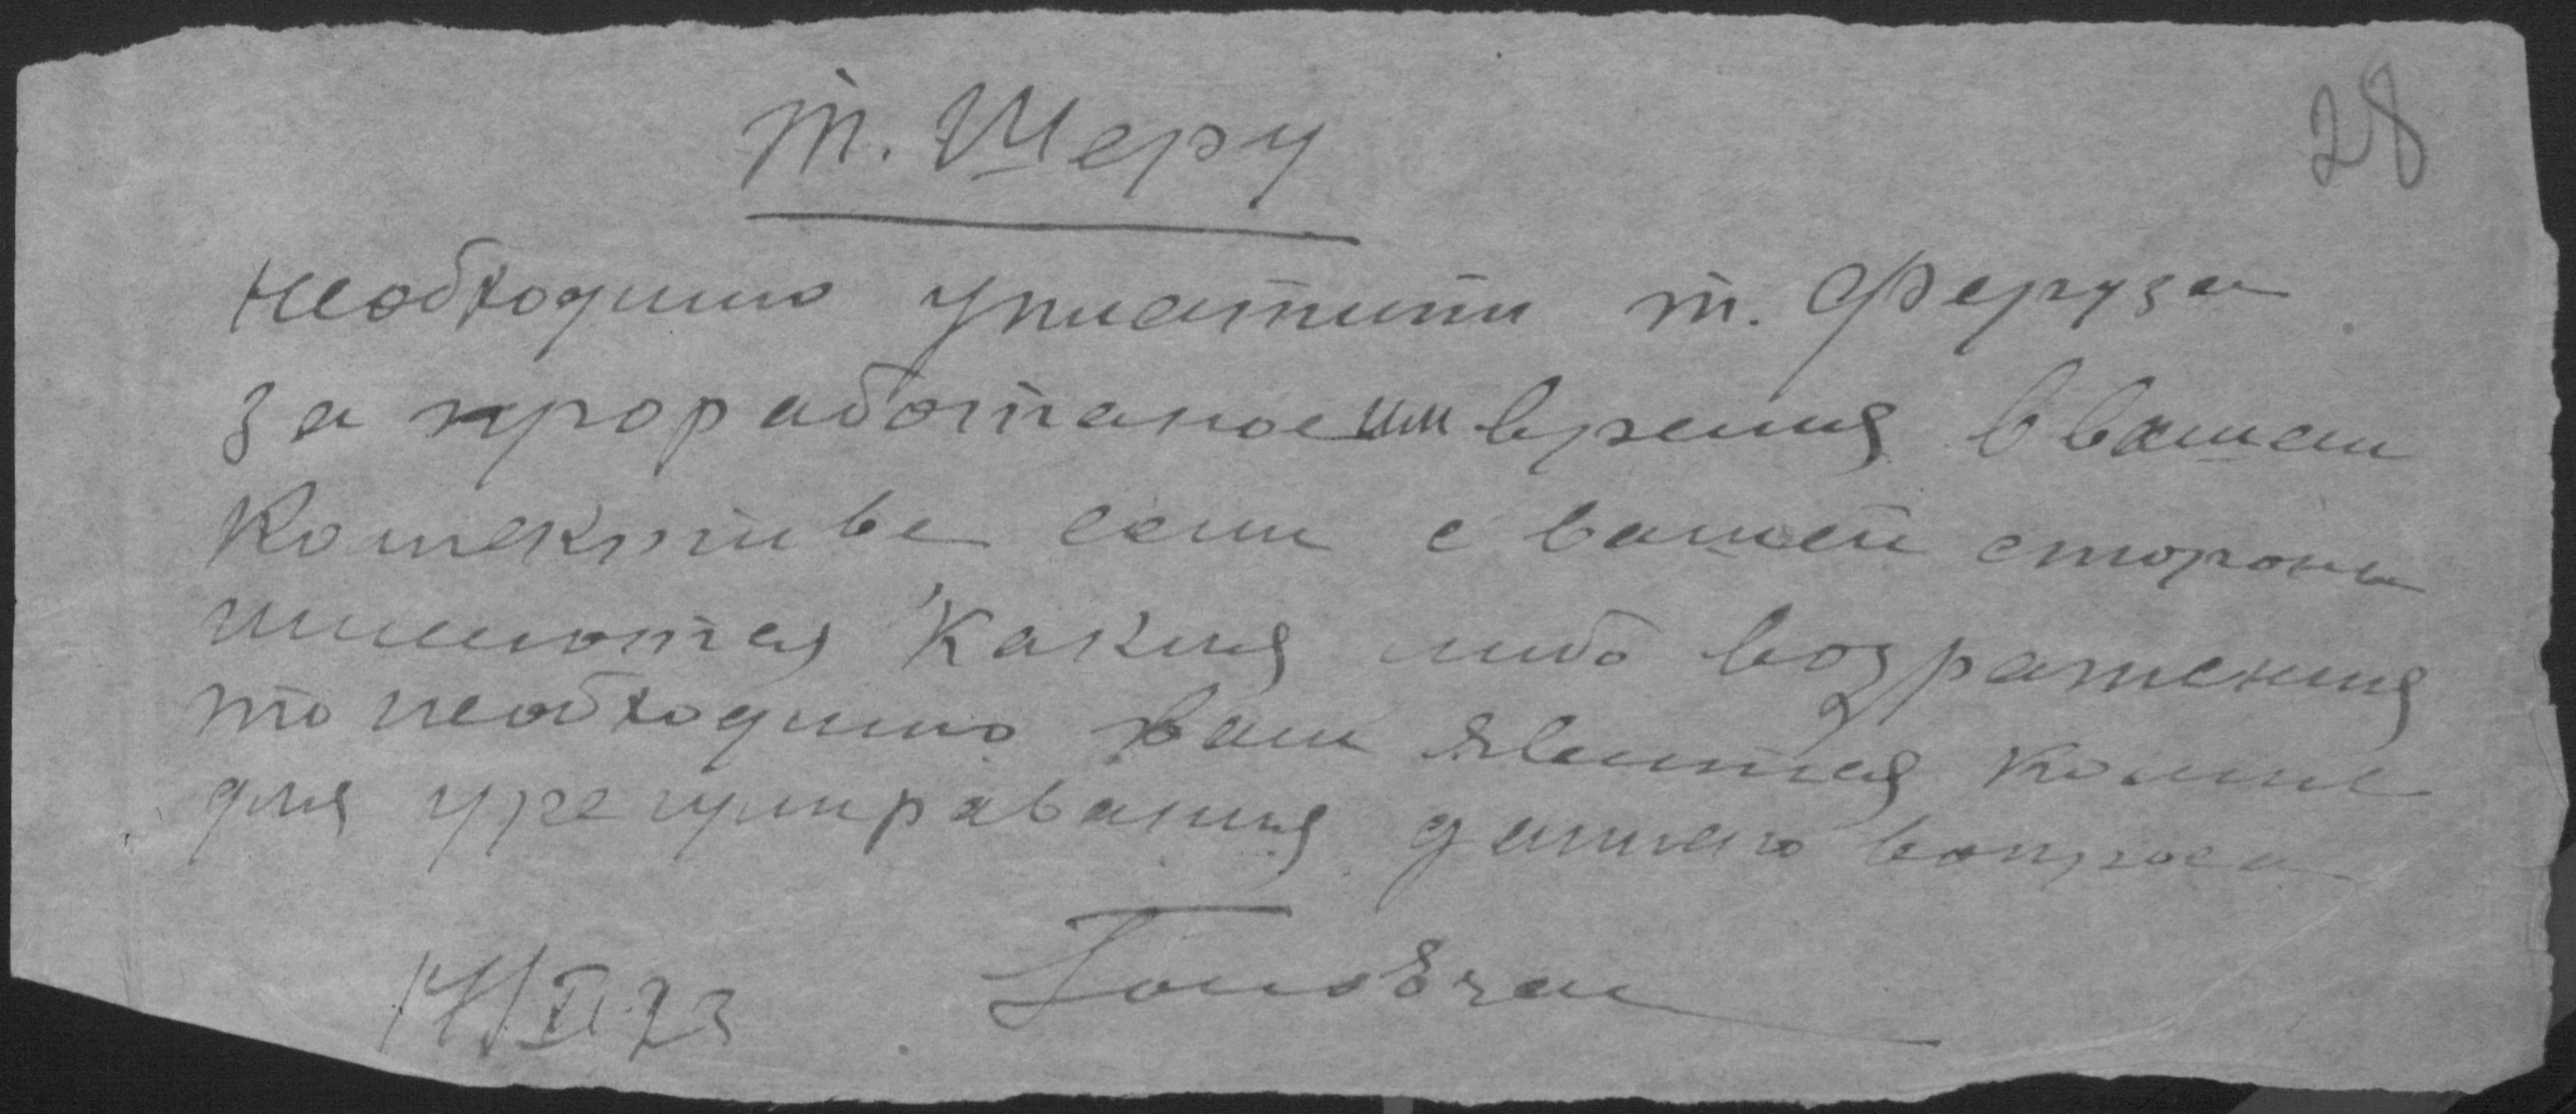 28
т. Шеру
необходимо уплатить т. Феруза
за проработаное им время в вашем
Колективе если с вашей стороны
имеются какия либо возражения
то необходимо вам явится комне
для урегулиравания данного вопроса
14/XI 23